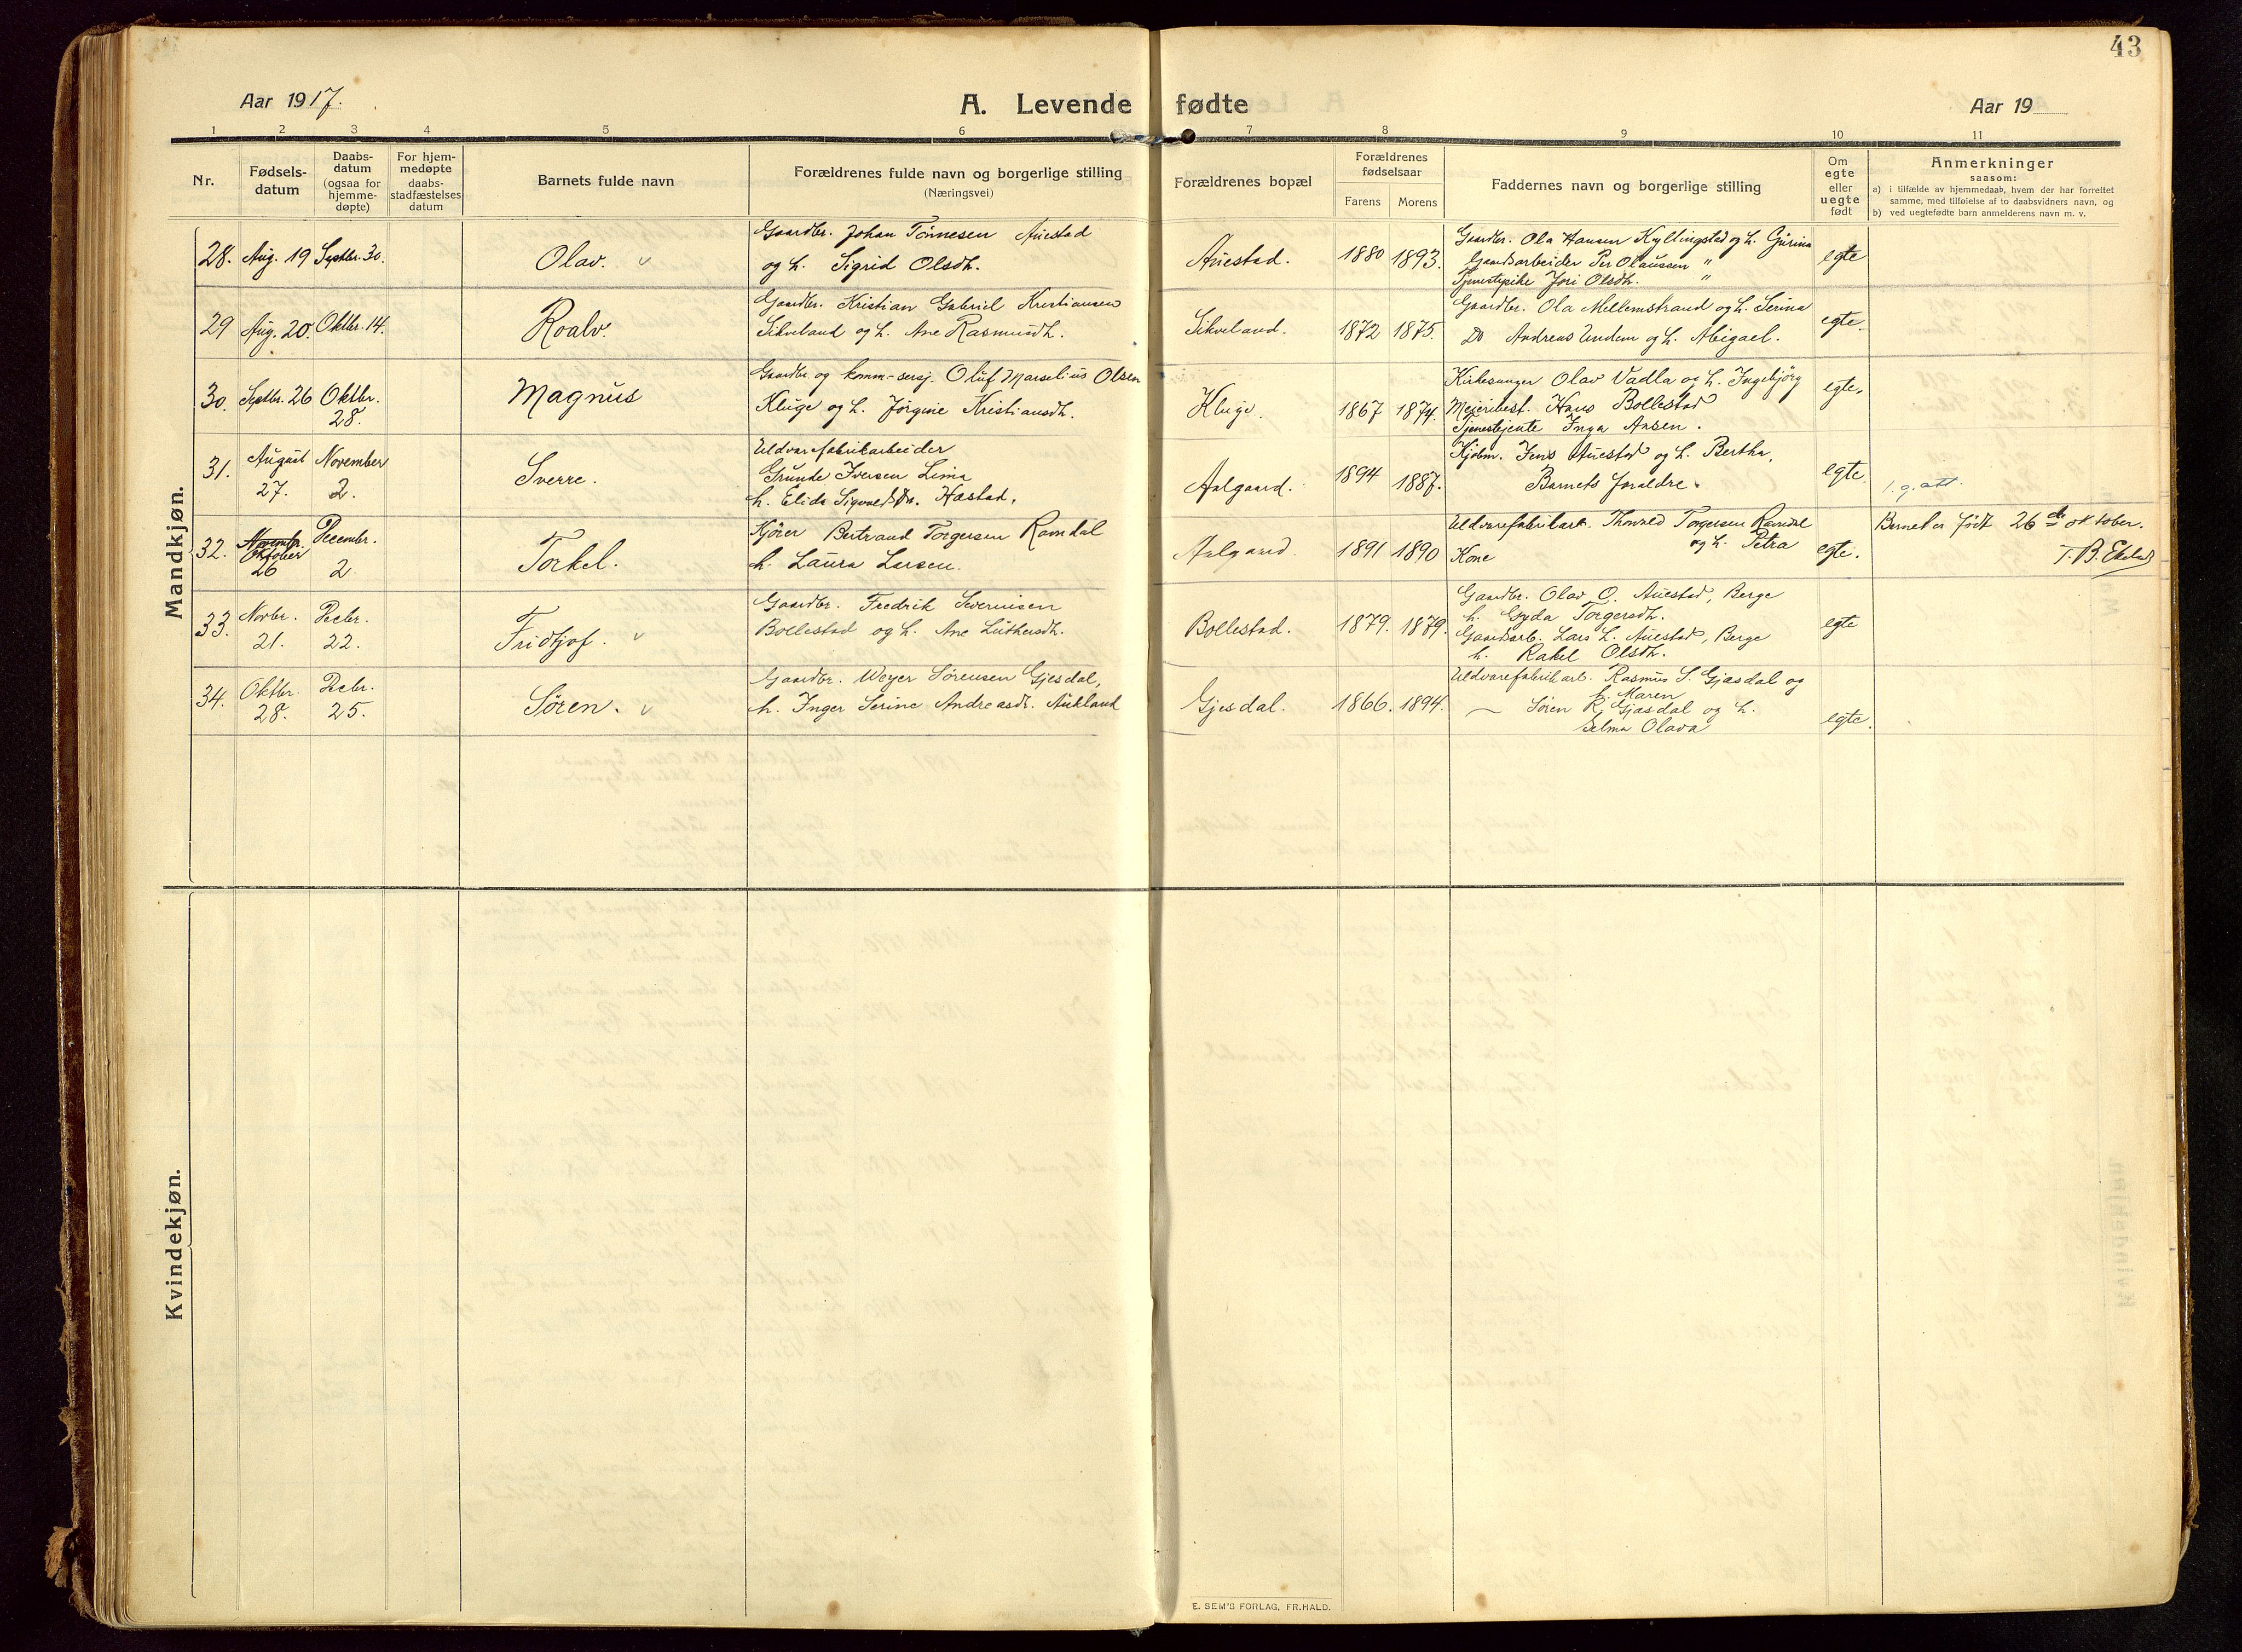 43
Aar 1917.
A. Levende fødte
Aar 19
1 2 3 4 5 6 7 8 9 10 11
Nr.
Fødsels-
datum
Daabs-
datum
(ogsaa for
hjemme-
døpte)
For hjem-
medøpte
daabs-
stadfæstelses
datum
Barnets fulde navn
Forældrenes fulde navn og borgerlige stilling
(Næringsvei)
Forældrenes bopæl
Forældrenes
fødselsaar
Farens Morens
Faddernes navn og borgerlige stilling
Om
egte
eller
uegte
født
Anmerkninger
saasom:
a) i tilfælde av hjemmedaab, hvem der har forrettet
samme, med tilføielse af to daabsvidners navn, og
b) ved uegtefødte barn anmelderens navn m. v.
Mandkjøn.
28. Aug. 19 Septbr. 30.
Olav.
Gaardbr. Johan Tönnesen Auestad
og h. Sigrid Olsdh.
Auestad.
1880 1893.
Gaardbr. Ola Hansen Kyllingstad og h. Gurina
Gaardsarbeider Per Olaussen "
Tjenestepike Jori Olsdh. "
egte
29 Aug. 20. Oktbr. 14.
Roalv.
Gaardbr. Kristian Gabriel Kristiansen
Sikveland og h. Ane Rasmusdh.
Sikveland.
1872 1875.
Gaardbr. Ola Mellemstrand og h. Serina
Do Andreas Undem og h. Abigael.
egte.
30. Septbr. 26 Oktbr.
28.
Magnus
Gaardbr. og komm-sersj. Oluf Marselius Olsen
Kluge og h. Jörgine Kristiansdh.
Kluge.
1867 1874.
Kirkesanger Olav Vadla og h. Ingebjörg
Meieribest. Hans Bollestad
Tjenestejente Inga Aasen.
egte.
31. August November
27. 2.
Sverre.
Uldvarefabrikarbeider
Grunde Iversen Lima
h. Elida Sigvaldsdr. Hastad.
Aalgaard.
1894 1887.
Kjöbm. Jens Auestad og h. Bertha,
Barnets Foraldre.
egte.
1. g. att.
32. Novembr. December.
Oktober
26 2
Torkel.
Kjörer Bertrand Torgersen Ramdal
h. Laura Larsen.
Aalgaard.
1891 1890
Uldvarefabrikark. Thorvald Torgersen Ramdal
og h. Petra
Kone
egte.
Barnet er født 26de oktober.
T. B. Ekeland
33. Novbr. Decbr.
21. 22.
Fridtjof.
Gaardbr. Fredrik Severinsen
Bollestad og h. Ane Luthersdh.
Bollestad.
1879. 1879.
Gaardbr. Olav O. Auestad, Berge
h. Gyda Torgersdh.
Gaardsarb. Lars L. Auestad, Berge
h. Rakel Olsdh.
egte
34. Oktbr. Decbr.
28. 25.
Søren.
Gaardbr. Weyer Sörensen Gjesdal,
h. Inger Serine Andreasdr. Aukland
Gjesdal.
1866. 1894.
Uldvarefabrikarb. Rasmus S. Gjesdal og
h. Maren
— Sören R. Gjesdal og h.
Selma Olava
egte.
Kvindekjøn.
E. SEM'S FORLAG, FR.HALD.